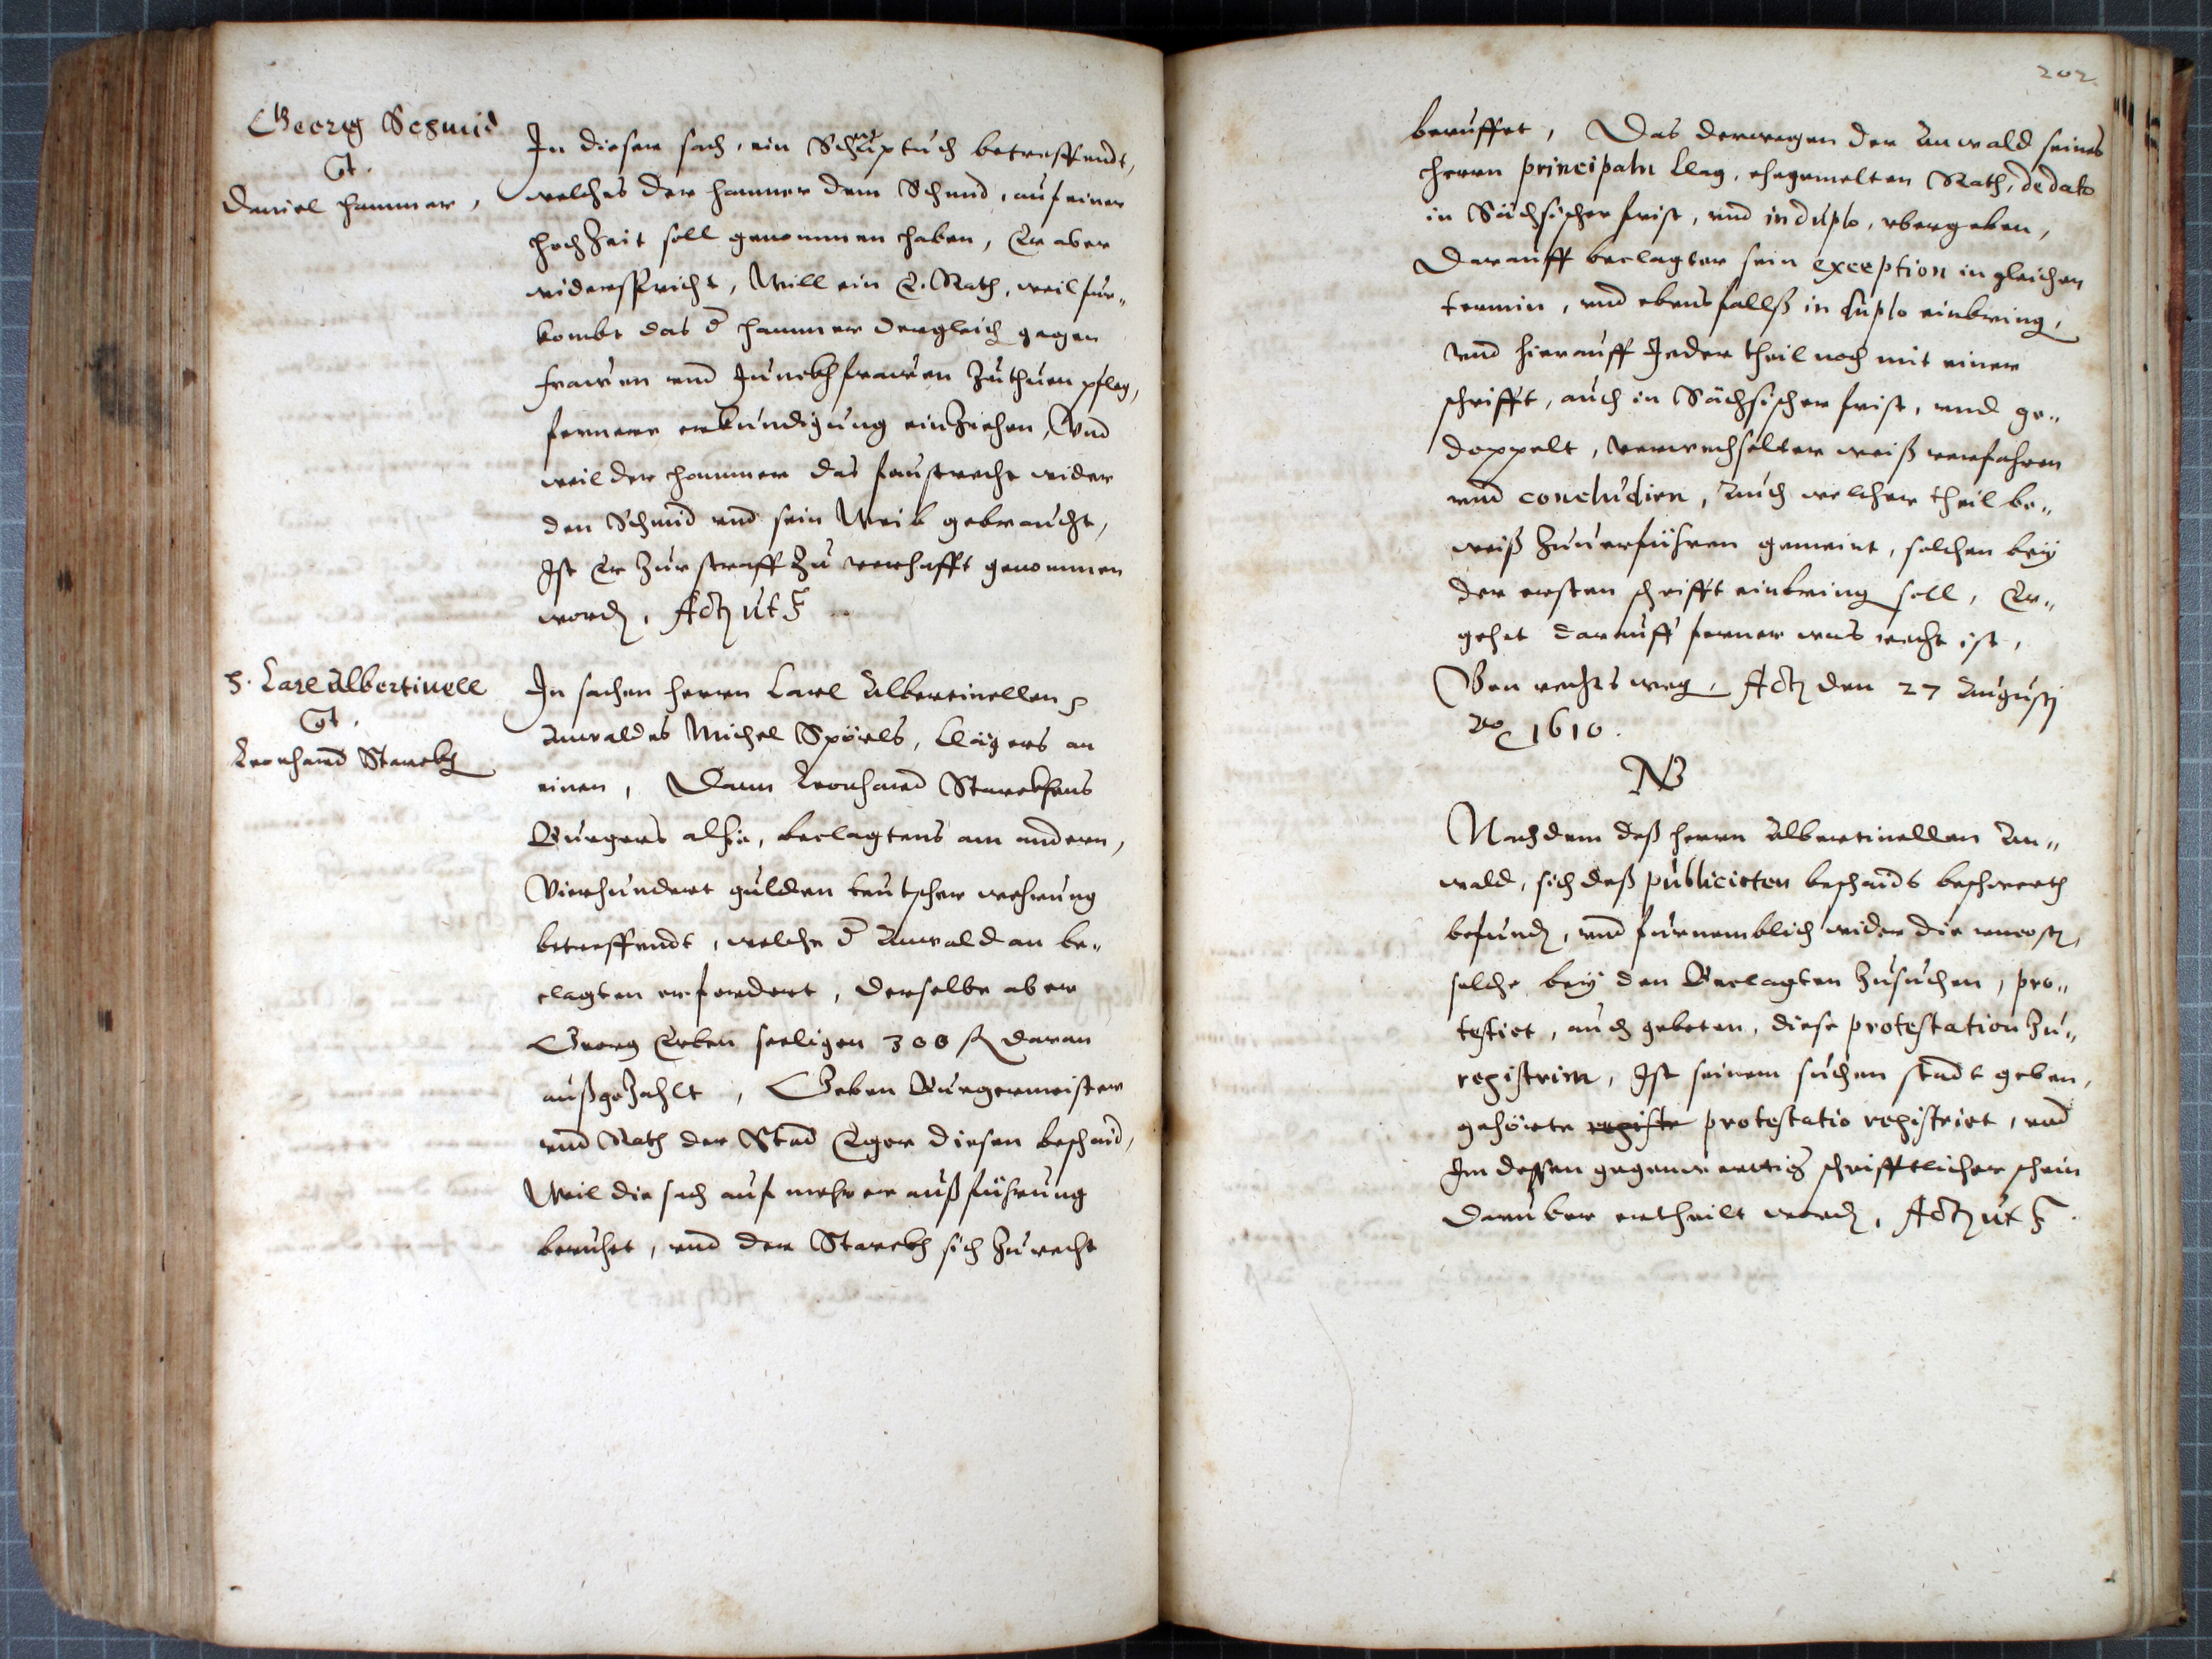 Georg Schmid
Ct.
Daniel Hammer,
In dieser sach, ein Schuptuch betreffendt,
welches der Hammer dem Schmid, auf einer
Hochzeit soll genommen haben, Er aber
widerspricht, Will ein E. Rath, weil für„
kombt das d Hammer dergleich gegen
frawen vnd Junckhfrawen zuthuen pfleg,
fernere erkundigung einziehen, Vnd
weil der Hammer das faustrecht wider
den Schmid vnd sein Weib gebraucht,
Ist Er zur straff zu verhafft genommen
word, Act ut S
H. Carl Albertinell
Ct.
Leonhard Starckh
In sachen Herrn Carl Albertinellen
Anwaldes Michel Spörls, Clägers an
einen, Dann Leonhard Starckhens
Burgers alhie, beclagtens am andern,
Vierhundert gulden teutscher wehrung
betreffendt, welche d Anwald an be„
clagten erfordert, derselbe aber
Georg Erben seeligen 300 fl daran
außgezahlt, Geben Burgermeister
vnd Rath der Stad Eger diesen beschaid,
Weil die sach auf mehrer außführung
beruhet, vnd der Starckh sich zu recht
202.
beruffet, Das derwegen der Anwald seines
Herrn principaln Clag, ehegemelten Rath, de dato
in Sächsischer frist, vnd in duplo, vbergeben,
Darauff beclagter sein exception in gleichen
termin, vnd ebensfallß in duplo einbring,
Vnd hierauff Jeder theil noch mit einer
schrifft, auch in Sächsischer frist, vnd ge„
doppelt, verwechselter weiß verfahren
vnd concludirn, Auch welcher theil be„
weiß zuuerführen gemeint, solchen beÿ
der ersten schrifft einbring soll, Er„
gehet darauff ferner was recht ist,
Von rechts weg, Act den 27 Augusti
Ao 1610.
NB
Nachdem deß Herrn Albertinellen An„
wald, sich deß publicirten beschaids beschwerth
befund, vnd fürnemblich wider die vncost,
solche beÿ den Beclagten zusuchen, pro„
testirt, auch gebeten, diese protestation zu„
registrirn, Ist seinem suchen stadt geben,
gehörte registr protestatio registrirt, vnd
Im dessen gegenwerttig schrifftlicher schein
darüber ertheilt word, Act ut S.